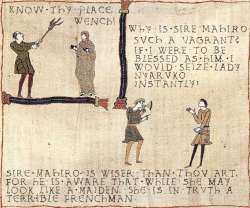 KNOW THY PLACE
WENCH!
WHY IS SIRE MAHIRO
SUCH A VAGRANT?
IF I WERE TO BE
BLESSED AS HIM, I
WOULD SEIZE LADY
NYARUKO
INSTANTLY!
SIRE MAHIRO IS WISER THAN THOU ART,
FOR HE IS AWARE THAT WHILE SHE MAY
LOOK LIKE A MAIDEN, SHE IS IN TRUTH A
TERRIBLE FRENCHMAN.